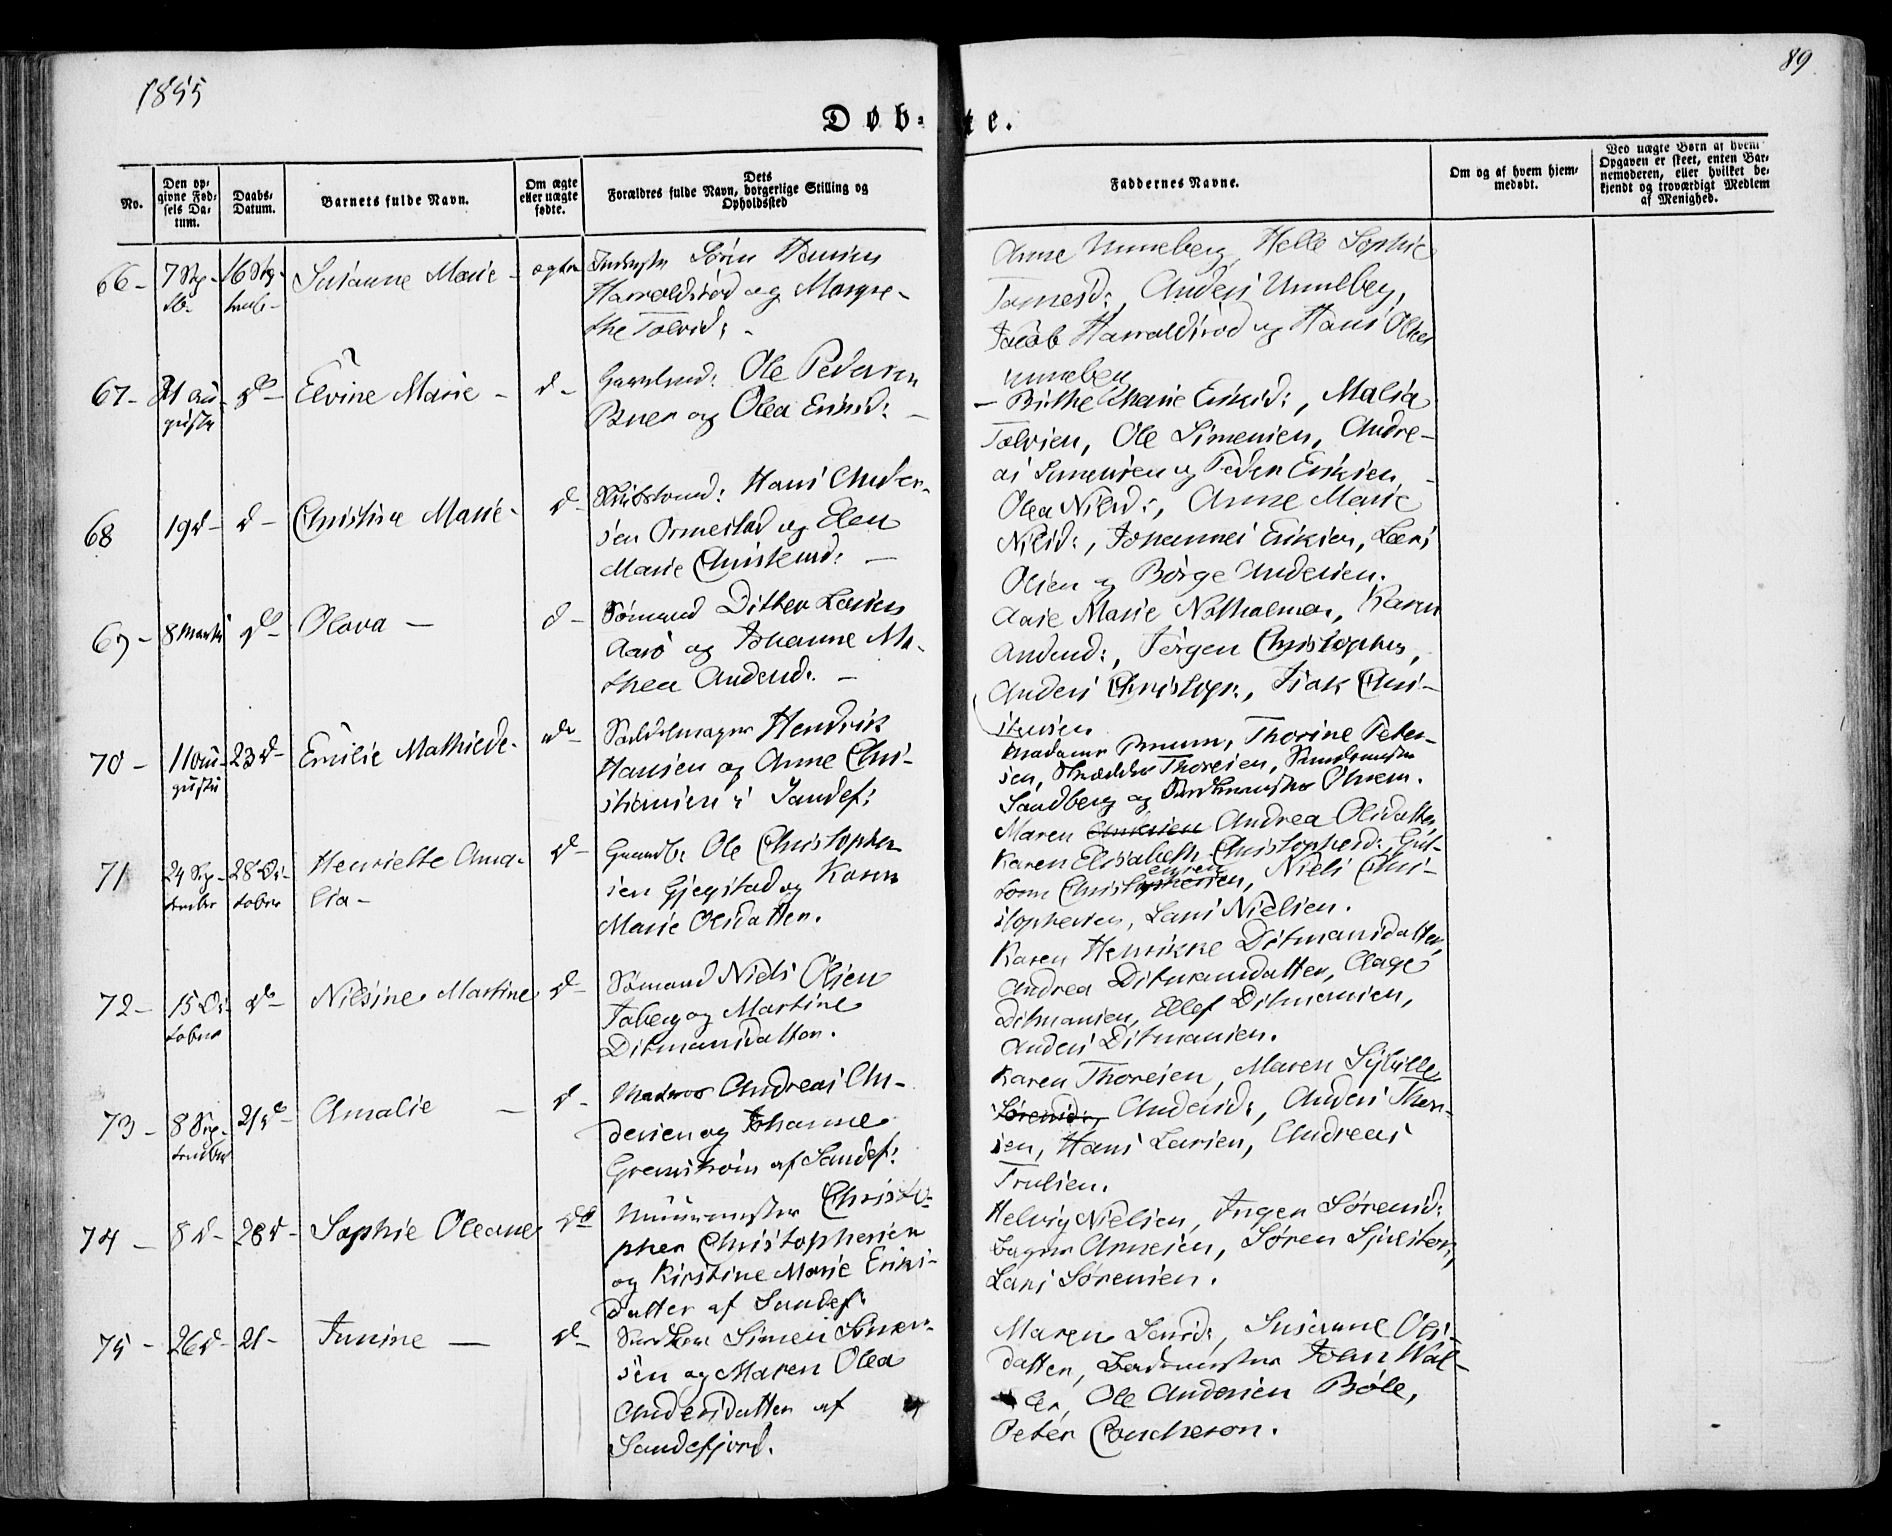 1855
89
Døb-te.
No.
Den op-
givne Fød-
sels Da-
tum.
Daabs-
Datum.
Barnets fulde Navn.
Om ægte
eller uægte
fødte.
Dets
Forældres fulde Navn, borgerlige Stilling og
Opholdssted
Faddernes Navne.
Om og af hvem hjem-
medøbt.
Ved uægte Børn af hvem
Opgaven er skeet, enten Bar-
nemoderen, eller hvilket be-
kjendt og troværdigt Medlem
af Menighed.
66 - 7 Sep- 16 Sep- Susanne Marie - ægte
Søren Hansen
Harroldsrød og Margre-
the Tolvsd: -
Anne Unneberg, Helle Sophie
Anders Unneberg,
Jacob Harroldsrød og Hans Olsen
Unneberg
67 - 21 Au-
gusti
do - Elvine Marie - d -
Gaardmd: Ole Pedersen
Bner og Olea Eriksd: -
- Birthe Marie Eriksd:, Malia
Tolvsen, Ole Simensen, Andre-
as Simensen og Peder Eriksen -
68 19 d - d - Christine Marie - d -
Hans Ander-
sen Ormestad og Elen
Marie Christensd: -
Olea Nilsd:, Anne Marie
Nilsd:, Johannes Eriksen, Lars
Olsen og Børge Andersen.
69 - 8 Marts do - Olava - d -
Sømand Ditlev Larsen
Aasø og Johanne Ma-
thea Andersd. -
Aase Marie Natholmen, Karen
Andersd:, Jørgen Christophers,
Anders Christoph:, Isak Chri-
stensen
70 - 11 Au-
gusti
23 d - Emilie Mathilde -
Sadelmager Hendrik
Hansen og Anne Chri-
stiansen i Sandef:
Madame Bruun, Thorine Peter-
sen, Skrædder Thoresen,
Sandberg og Olsen.
71 24 Sep-
tember
28 Oc-
tober
Henriette Ama-
lia -
d -
Gaardbr Ole Christopher-
sen Gjegstad og Karen
Marie Olsdatter.
Maren Andrea Olsdatter,
Karen Elisabeth Christophersd:, Gul-
Niels Chri-
stophersen, Lars Nielsen.
72 - 15 Oc-
tober
do - Nilsine Martine d -
Sømand Niels Olsen
Faberg og Martine
Ditmansdatter.
Karen Henrikke Ditmansdatter,
Andrea Ditmansdatter, Aage
Ditmansen, Ellef Ditmansen,
Anders Ditmansen.
73 - 8 Sep-
tember
21 d - Amalie - d -
Matros Andreas An-
dersen og Johanne
Grønstrøm af Sandef:
Karen Thoresen, Maren Sybille
Sørensd:, Andersd:, Anders Thor-
sen, Hans Larsen, Andreas
Trulsen.
74 - 8 d - 28 d - Sophie Oleane do
Muurmester Christo-
pher Christophersen
og Kirstine Marie Eriks-
datter af Sandef:
Helvig Nielsen, Inger Sørensd:
Bager Arnesen, Søren Sjulsten,
Lars Sørensen.
75 - 26 d - 21 - Junine - d -
Simen Simen-
sen og Maren Olea
Andersdatter af
Sandefjord.
Maren Jensd:, Susanne Ols-
datter, Bademester John Wal-
ler, Ole Andersen Bøle,
Peter Concheron.